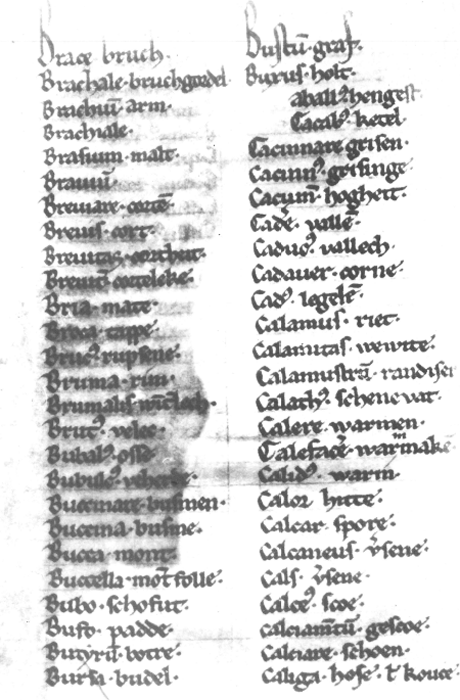 Brace bruch·
Brachale·bruchgordel
Brachiū arm·
Brachiale·
Brasium·malt·
Brauiū·
Breuiare·cortē·
Breuis·cort·
Breuitas·corthut·
Breuit᷑·corteleke·
Bria·mate·
Broca·tappe·
Bruc᷒·rupsene·
Bruma·rim·
Brumalis
Brut᷒·
Bubal᷒·osse·
Bubulc᷒
Buccinare·businen·
Buccina·busine·
Bucca·mont·
Buccella·mōtfolle·
Bubo·schofut·
Bufo·padde·
Butyrū·botre·
Bursa·budel·
Bustū·graf·
Buxus·holt·
aball᷒·hengest
Cacab᷒·ketel·
Cacinnare grisen·
Cacinn᷒·grisinge
Cacum̄·hogheit·
Cadē·vallē·
Caduc᷒·vallech·
Cadauer·corne·
Cad᷒·legelē·
Calamus·riet·
Calamitas·wewite·
Calamistrū·randiser
Calath᷒·schenevat·
Calere·warmen·
Calefacē·warmmake
Calid᷒·warm·
Calor·hitte·
Calcar·spore·
Calcaneus·v̄sene·
Cals·v̄sene·
Calce᷒·scoe·
Calciam̄tū·gescoe·
Calciare·schoen·
Caliga·hose·ł kouce